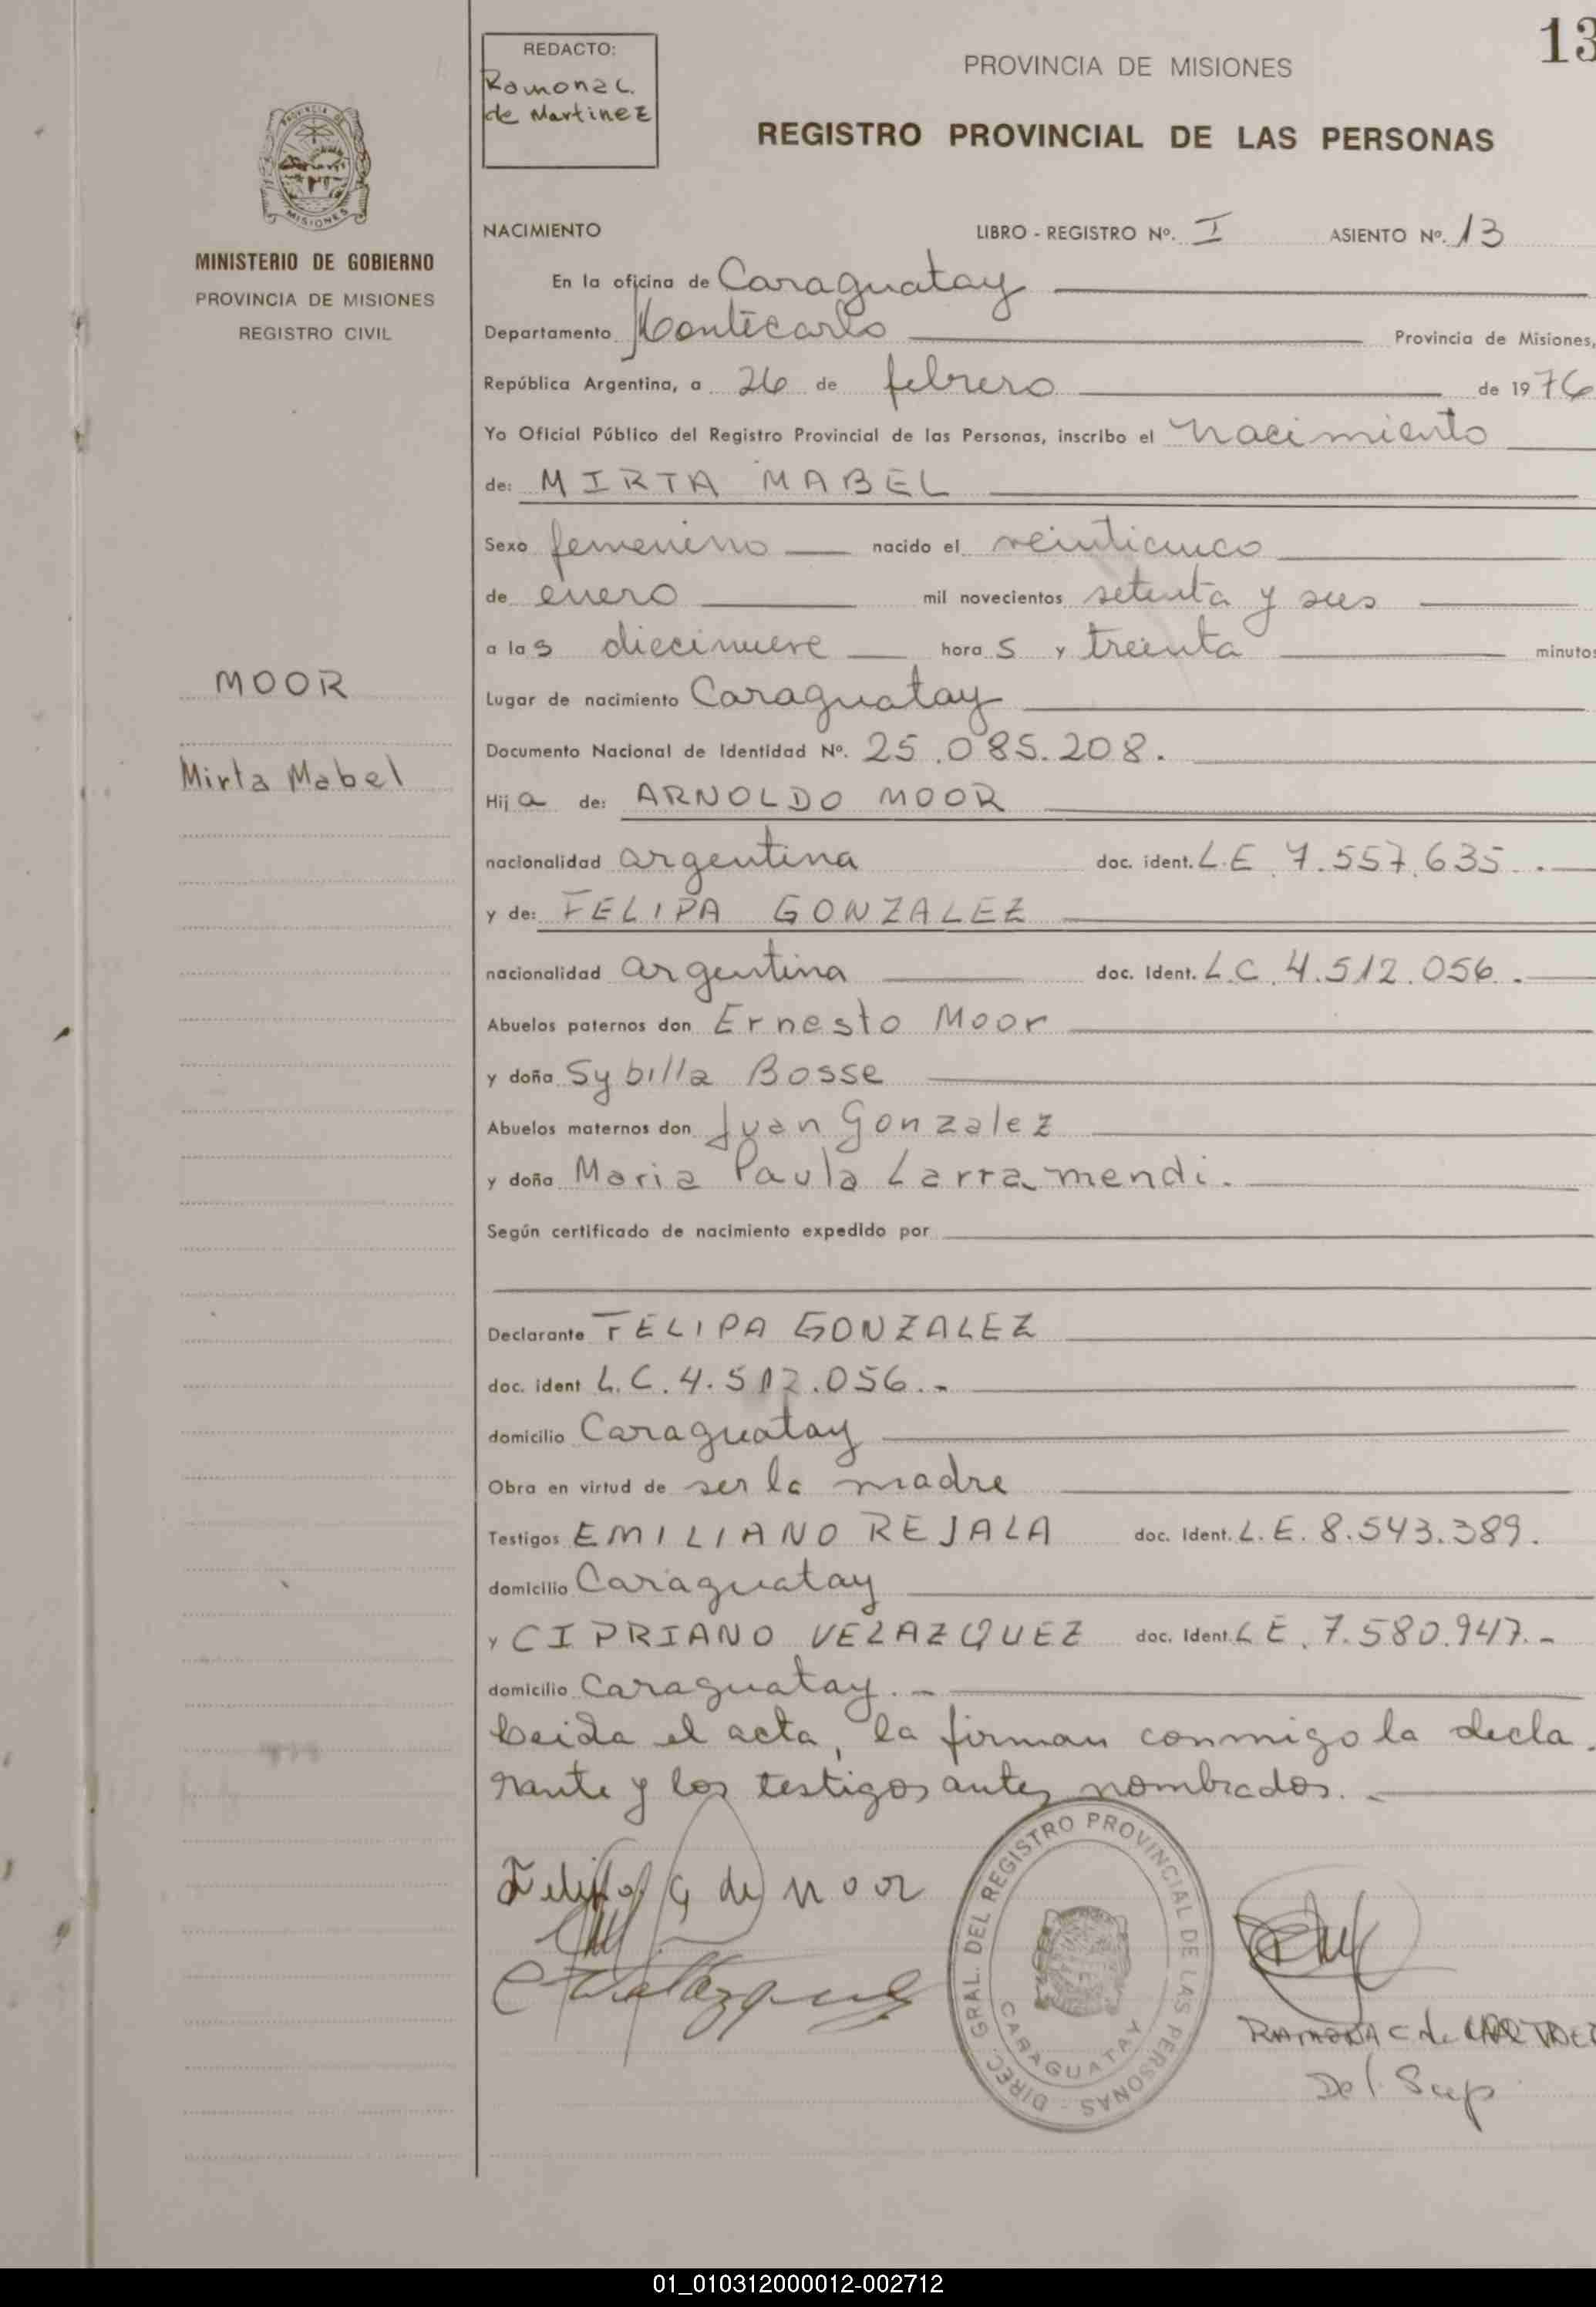 13
REDACTO:
Ramona C.
de Martinez
PROVINCIA DE MISIONES
REGISTRO PROVINCIAL DE LAS PERSONAS
PROVINCIA DE
MISIONES
MINISTERIO DE GOBIERNO
PROVINCIA DE MISIONES
REGISTRO CIVIL
MOOR
Mirta Mabel
NACIMIENTO LIBRO - REGISTRO Nº. I ASIENTO Nº. 13
En la oficina de Caraguatay
Departamento Montecarlo Provincia de Misiones,
República Argentina, a 26 de febrero de 1976
Yo Oficial Público del Registro Provincial de las Personas, inscribo el nacimiento
de: MIRTA MABEL
Sexo femenino nacido el veinticinco
de enero mil novecientos setenta y seis
a las diecinueve horas y treinta minutos
Lugar de nacimiento Caraguatay
Documento Nacional de Identidad Nº. 25.085.208.
Hija de: ARNOLDO MOOR
nacionalidad argentina doc. ident. L.E. 7.557.635.-
y de: FELIPA GONZALEZ
nacionalidad argentina doc. Ident. L.C. 4.512.056.-
Abuelos paternos don Ernesto Moor
y doña Sybilla Bosse
Abuelos maternos don Juan Gonzalez
y doña Maria Paula Larramendi.
Según certificado de nacimiento expedido por
Declarante FELIPA GONZALEZ
doc. ident L.C. 4.512.056.-
domicilio Caraguatay
Obra en virtud de ser la madre
Testigos EMILIANO REJALA doc. Ident. L.E. 8.543.389.
domicilio Caraguatay
y CIPRIANO VELAZQUEZ doc. Ident. L E. 7.580.947.-
domicilio Caraguatay.-
Leida el acta, la firman conmigo la decla.
rante y los testigos antes nombrados.-
Felipa G de Moor
C Velazquez
DIREC. GRAL. DEL REGISTRO PROVINCIAL DE LAS PERSONAS -
CARAGUATAY
RAMONA C de MARTINEZ
Del. Sup.
01_010312000012-002712